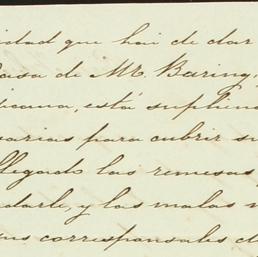 idad que hai de dar
Casa de Mr. Baring,
icana, está suplien
varias para cubrir su
llegado las remesas
darle, y las malas n
us corresponsales d